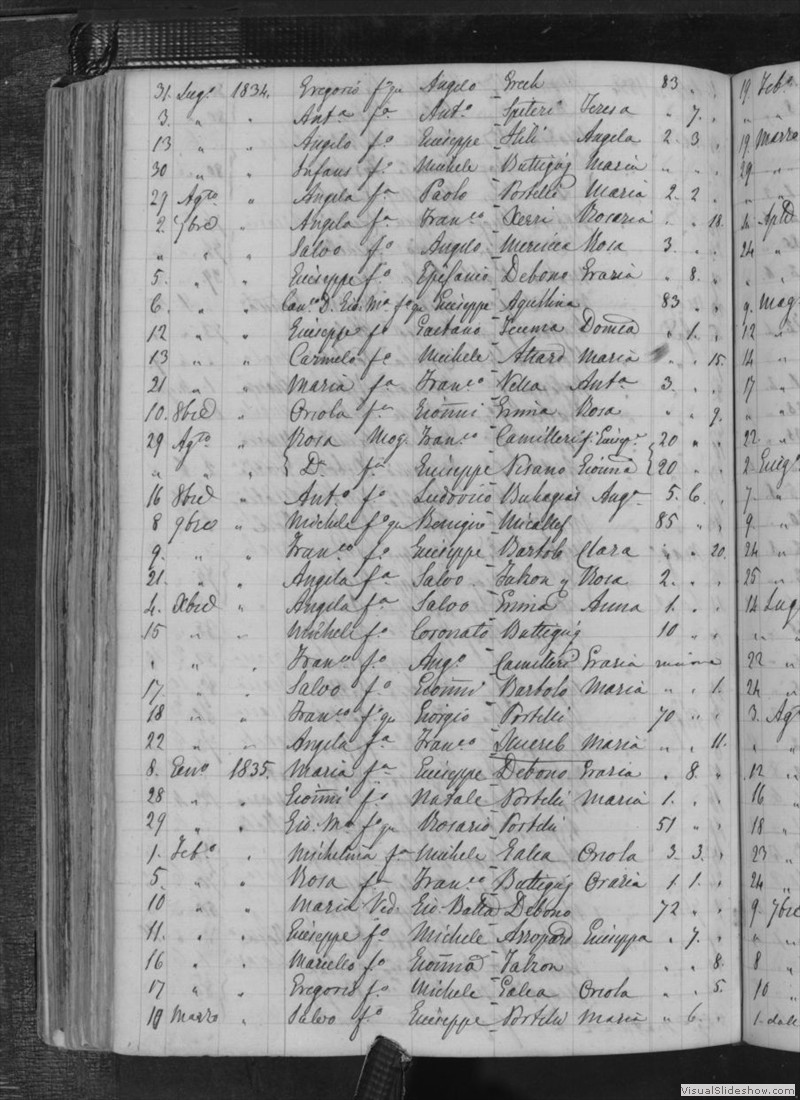 31. Lug.o 1834. Gregorio f.o qu Angelo Grech 83 " "
3. " " Ant.a f.a Ant.o Spiteri Teresa " 7. "
13 " " Angelo f.o Giuseppe Stili Angela 2. 3 "
30 " " Infans f.o Michele Buttigieg Maria " " "
29 Ag.to " Angela f.a Paolo Portelli Maria 2. 2 "
2. 7bre " Angela f.a Fran.co Xerri Rosaria " " 18.
" " " Salvo f.o Angelo Rosa 3. " "
5. " " Giuseppe f.o Epifanio Debono Grazia " 8. "
6. " " Can.co D. Gio. M.a f.o qu Giuseppe Agullina 83 " "
12 " " Giuseppe f.o Gaetano Domca " 1. "
13 " " Carmelo f.o Michele Attard Maria " " 15.
21 " " Maria f.a Fran.co Vella Ant.a 3. " "
10. 8bre " Oriola f.a Gioanni Rosa " " 9.
29 Ag.to " Rosa Mog. Fran.co Camilleri f. Giusp.e 20 " "
" " " D.a f.a Giuseppe Pisano Gioanna 20 " "
16 8bre " Ant.o f.o Ludovico Buhagiar Ang.a 5. 6. "
8 9bre " Michele f.o qu Benigno Micallef 85 " "
9. " " Fran.co f.o Giuseppe Bartolo Clara " " 20.
21. " " Angela f.a Salvo Falzon Rosa 2. " "
4. Xbre " Angela f.a Salvo Anna 1. " "
15 " " Michele f.o Coronato Buttigieg 10 " "
" " " Fran.co f.o Ang.o Camilleri Grazia " "
17. " " Salvo f.o Gioanni Bartolo Maria " " 1.
18 " " Fran.co f.o qu Giorgio Portelli 70 " "
22 " " Angela f.a Fran.co Xuereb Maria " " 11.
8. Gen.o 1835. Maria f.a Giuseppe Debono Grazia " 8. "
28 " " Gioanni f.o Natale Portelli Maria 1. " "
29 " " Gio. M.a f.o qu Rosario Portelli 51 " "
1. Feb.o " Michelina f.a Michele Galea Oriola 3. 3. "
5. " " Rosa f.a Fran.co Buttigieg Grazia 1. 1. "
10 " " Maria Ved. Gio. Batta Debono 72 " "
11. " " Giuseppe f.o Michele Giuseppa " 7. "
16 " " Marcello f.o Gioanna Falzon " " 8.
17 " " Gregorio f.o Michele Galea Oriola " " 5.
10 Marzo " Salvo f.o Giuseppe Portelli Maria " 6. "
19. Feb.o
" "
19 Marzo
29 "
" "
24 "
9. Mag
12 "
14 "
17 "
" "
22. "
2. Giug.o
7. "
9 "
24 "
25 "
14 Lug
" "
22 "
24 "
3. Ag.o
" "
12 "
16 "
18 "
23 "
24 "
9. 7bre
" "
8 "
10 "
VisualSlideshow.com